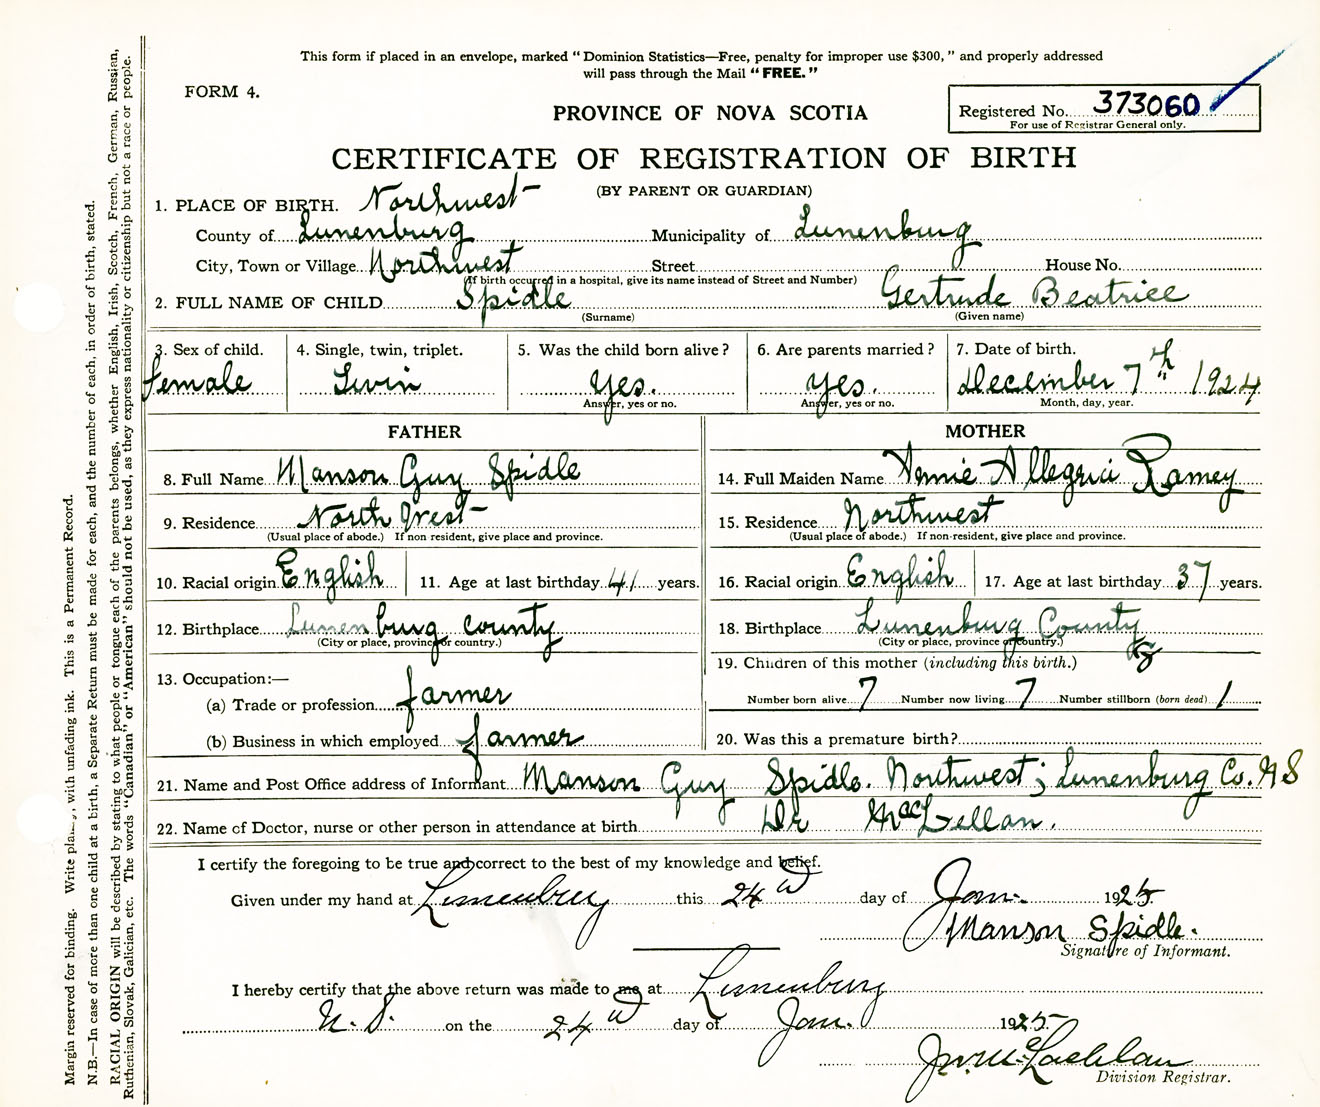 This form if placed in an envelope, marked "Dominion Statistics—Free, penalty for improper use $300," and properly addressed
will pass through the Mail "FREE."
FORM 4.
PROVINCE OF NOVA SCOTIA
Registered No. 373060
For use of Registrar General only.
CERTIFICATE OF REGISTRATION OF BIRTH
(BY PARENT OR GUARDIAN)
1. PLACE OF BIRTH. Northwest
County of Lunenburg Municipality of Lunenburg
City, Town or Village Northwest Street House No.
(If birth occurred in a hospital, give its name instead of Street and Number)
2. FULL NAME OF CHILD Spidle Gertrude Beatrice
(Surname) (Given name)
3. Sex of child. 4. Single, twin, triplet. 5. Was the child born alive? 6. Are parents married? 7. Date of birth.
female Twin yes. yes. December 7th 1924
Answer, yes or no. Answer, yes or no. Month, day, year.
FATHER MOTHER
8. Full Name Manson Guy Spidle 14. Full Maiden Name Annie Allegria Ramey
9. Residence North West 15. Residence Northwest
(Usual place of abode.) If non resident, give place and province. (Usual place of abode.) If non-resident, give place and province.
10. Racial origin English 11. Age at last birthday 41 years. 16. Racial origin English 17. Age at last birthday 37 years.
12. Birthplace Lunenburg county 18. Birthplace Lunenburg County
(City or place, province or country.) (City or place, province or country.)
19. Children of this mother (including this birth.) 8
13. Occupation:—
(a) Trade or profession farmer Number born alive 7 Number now living 7 Number stillborn (born dead) 1
(b) Business in which employed farmer 20. Was this a premature birth?
21. Name and Post Office address of Informant Manson Guy Spidle. Northwest; Lunenburg Co. N S
22. Name of Doctor, nurse or other person in attendance at birth Dr MacLellan.
I certify the foregoing to be true and correct to the best of my knowledge and belief.
Given under my hand at Lunenburg this 24th day of Jan. 1925.
Manson Spidle.
Signature of Informant.
I hereby certify that the above return was made to me at Lunenburg
N. S. on the 24th day of Jan. 1925.
McLachlan
Division Registrar.
Margin reserved for binding. Write plainly, with unfading ink. This is a Permanent Record.
N.B.—In case of more than one child at a birth, a Separate Return must be made for each, and the number of each, in order of birth, stated.
RACIAL ORIGIN will be described by stating to what people or tongue each of the parents belongs, whether English, Irish, Scotch, French, German, Russian,
Ruthenian, Slovak, Galician, etc. The words "Canadian" or "American" should not be used, as they express nationality or citizenship but not a race or people.